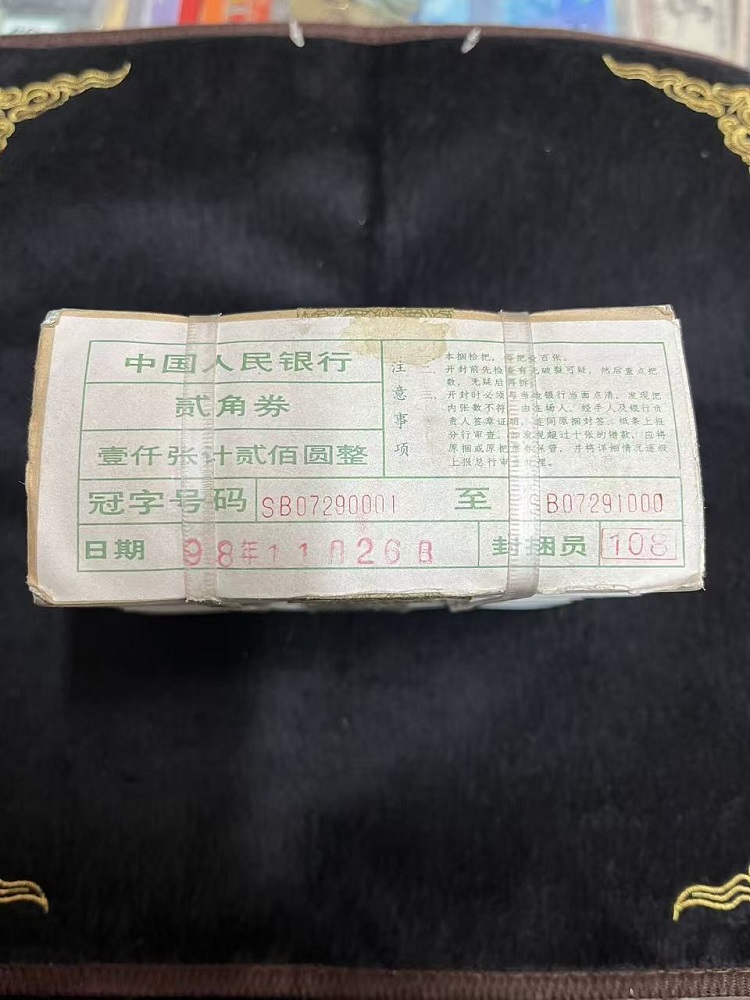 中国人民银行
贰角券
壹仟张计贰佰圆整
注意事项
一、本捆检把，每把壹百张。
二、开封前先检查有无破裂可疑，然后查点把
数，无疑后再拆。
三、开封时必须与当地银行当面点清，发现把
内张数不符，由在场人、经手人及银行负
责人签章证明，连同原捆封签、纸条上报
分行审查。如发现超过十张的错款，应将
原捆或原把票数保管，并将详细情况逐级
上报总行审查处理。
冠字号码 SB07290001 至 SB07291000
日期 98年11月26日 封捆员 108